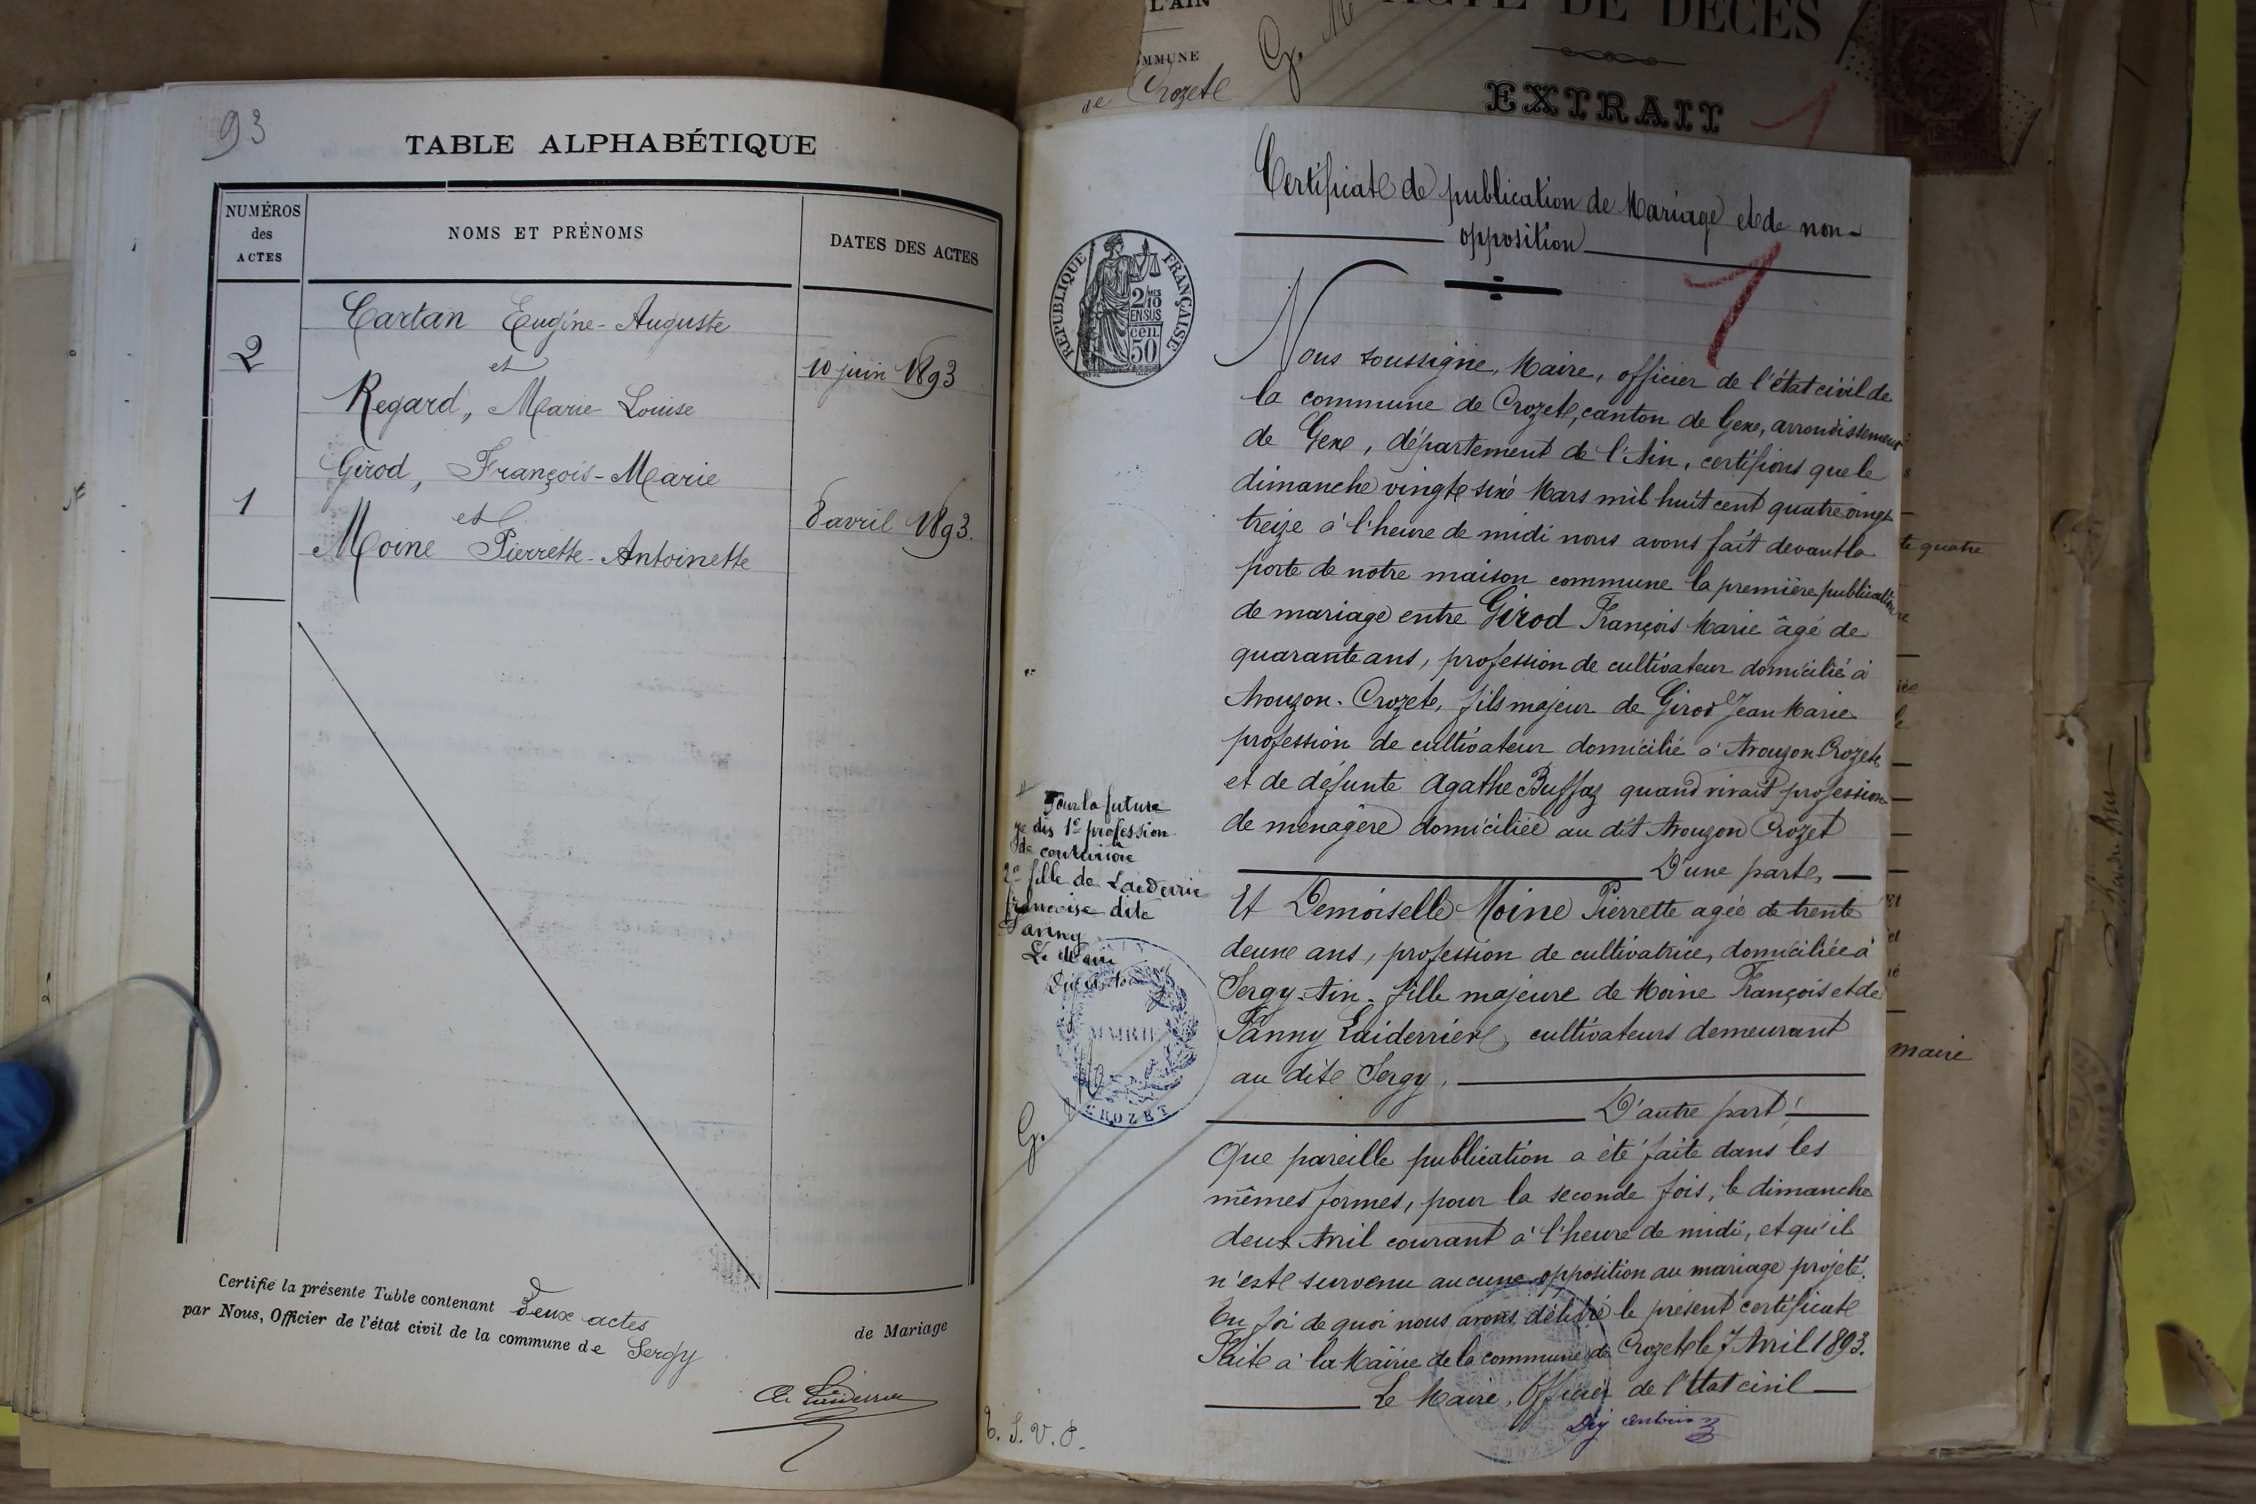 93
TABLE ALPHABÉTIQUE
NUMÉROS
des
ACTES
NOMS ET PRÉNOMS
DATES DES ACTES
Cartan Eugène-Auguste
2
et
10 juin 1893
Regard, Marie Louise
Girod, François-Marie
1
et
8 avril 1893.
Moine Pierrette-Antoinette
Certifié la présente Table contenant deux actes
de Mariage
par Nous, Officier de l'état civil de la commune de Sergy
L'AIN
COMMUNE
de Crozet
ACTE DE DÉCÈS
EXTRAIT
Certificat de publication de Mariage et de non-
opposition
1
RÉPUBLIQUE FRANÇAISE
2/10
EN SUS
50
CEN.
Nous soussigné, Maire, officier de l'état civil de
la commune de Crozet, canton de Gex, arrondissement
de Gex, département de l'Ain, certifions que le
dimanche vingt six Mars mil huit cent quatre vingt
treize à l'heure de midi nous avons fait devant la
porte de notre maison commune la première publication
de mariage entre Girod François Marie âgé de
quarante ans, profession de cultivateur domicilié à
Avouzon-Crozet, fils majeur de Girod Jean Marie
profession de cultivateur domicilié à Avouzon Crozet
et de défunte Agathe Buffaz quand vivait profession
de ménagère domiciliée au dit Avouzon Crozet
D'une part,
Et Demoiselle Moine Pierrette agée de trente
deux ans, profession de cultivatrice, domiciliée à
Sergy-Ain. fille majeure de Moine François et de
Fanny Laiderrière cultivateurs demeurant
au dite Sergy.
D'autre part!
Que pareille publication a été faite dans les
mêmes formes, pour la seconde fois, le dimanche
deux Avril courant à l'heure de midi, et qu'il
n'est survenu aucune opposition au mariage projeté.
En foi de quoi nous avons délivré le présent certificat
Fait à la Mairie de la commune de Crozet le 7 Avril 1893.
Le Maire, Officier de l'état civil
Pour la future
je dis 1° profession
de couturière
2° fille de Laiderrière
françoise dite
Fanny
Le Maire
MAIRIE
CROZET
G.
T. S. V. P.
te quatre
maire